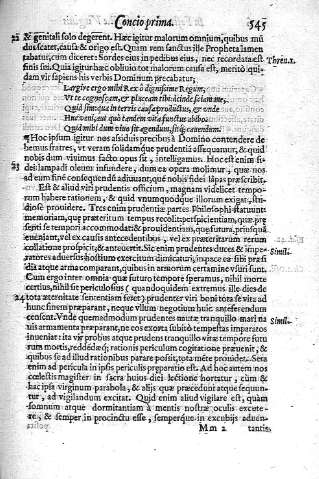 Concio prima. 545
& genitali solo degerent. Hæc igitur malorum omnium, quibus mũ
dus scatet, causa & origo est. Quam rem sanctus ille Propheta lamen
tabatur, cum diceret: Sordes eius in pedibus eius, nec recordata est Thren.1.
finis sui. Quia igitur hæc obliuio tot malorum causa est, meritò qui-
dam vir sapiens his verbis Dominum precabatur;
Largire ergo mihi Rex ô dignissime Regum,
Vt te cognoscam, & placeam tibi:
Quid simque in terris causa productus, & vnde
Huc veni, aut quò tendem vita functus abibo.
Quid mihi dum viuo sit agendum, sit
Hoc ipsum igitur nos assiduis precibus à Domino contendere de
bemus fratres, vt veram solidamque prudentiã assequamur, & quid
nobis dum viuimus facto opus sit, intelligamus. Hoc est enim fi-
23 dei lampadi oleum infundere, dum ea opera molimur, quæ nos
ad eum finẽ consequendũ adiuuant, quẽ nobis fidei lãpas præscribit.
Est & aliud viri prudentis officium, magnam videlicet tempo-
rum habere rationem, & quid vnumquodque illorum exigat, stu-
diosè prouidere. Tres enim prudentiæ partes Philosophi statuunt:
memoriam, quæ præteritum tempus recolit; intelligentiam, quæ præ-
senti se tempori accommodat: & prouidentiam, quæ futura, priusquã
eueniant, vel ex causis antecedentibus, vel ex præteritarum rerum
collatione prospicit, & antеuertit. Sic enim prudentes duces & impe- Simil.
ratores aduersus hostium exercitum dimicaturi, in pace ea sibi præsi
dia atque arma comparant, quibus in armorum certamine vsuri sunt.
Cum ergo inter omnia quæ futuro tempore speramus, nihil morte
certius, nihil sit periculosius (quandoquidem extremus ille dies de
24 tota æternitate sententiam feret) prudenter viri boni tota se vita ad
hunc finem præparant, neque vllum negotium huic anteferendum
censent. Vnde quemadmodum prudentes nautæ tranquillo mari na Simil.
uis armamenta præparant, ne eos exorta subitò tempestas imparatos
inueniat: ita viri probi atque prudentes tranquillo vitæ tempore futu
rum mortis, reddendæque rationis periculum cogitatione præuenit, &
quibus se ad illud rationibus parare possit, tota mẽte prouidet. Sera
enim ad pericula in ipsis periculis præparatio est. Ad hoc autem nos
cœlestis magister in sacra huius diei lectione hortatur, cùm &
hac ipsa virginum parabola, & alijs quæ præcedunt atque sequun-
tur, ad vigilandum excitat. Quid enim aliud vigilare est, quàm
somnum atque dormitantiam à mentis nostræ oculis excute-
re, & semper in procinctu esse, semperque in excubijs aduen-
Mm 2 tantis